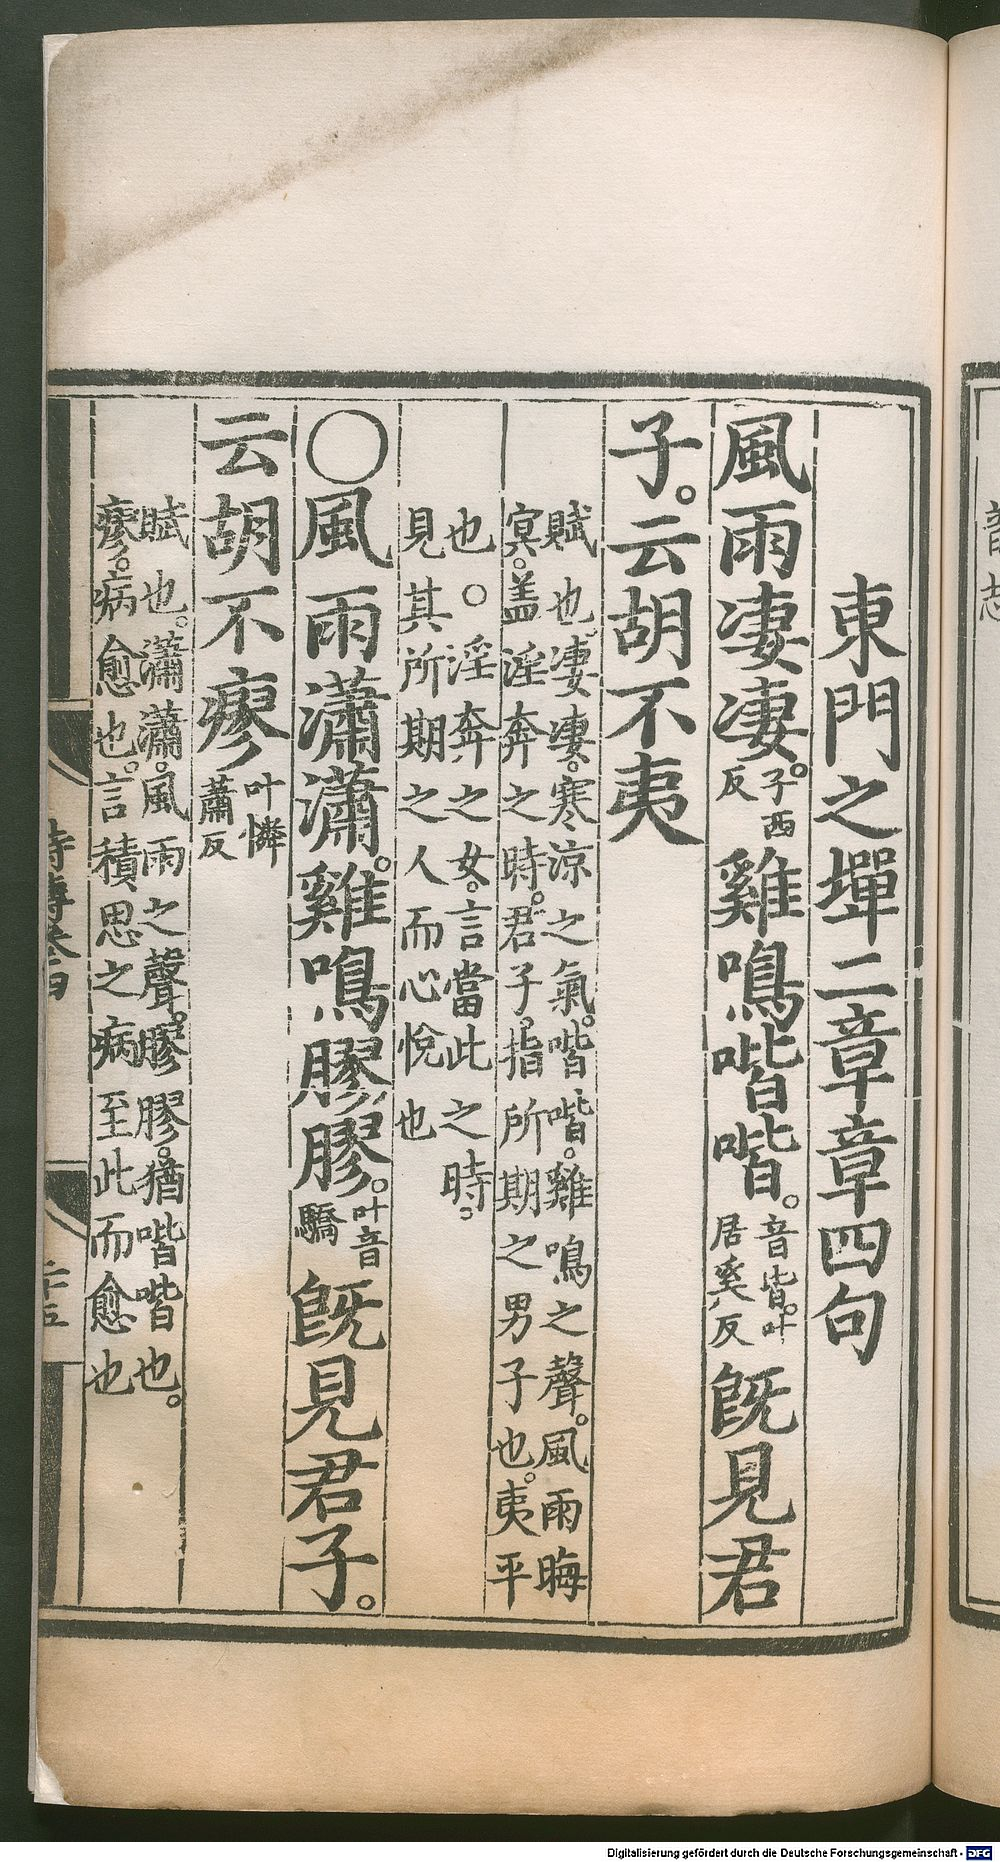 東門之墠二章章四句
風雨凄凄。子西反雞鳴喈喈。音皆。叶居奚反旣見君
子。云胡不夷
賦也。凄凄。寒涼之氣。喈喈。雞鳴之聲。風雨晦
冥。蓋淫奔之時。君子。指所期之男子也。夷平
也。○淫奔之女。言當此之時。
見其所期之人而心悅也
○風雨瀟瀟。雞鳴膠膠。叶音驕旣見君子。
云胡不瘳叶憐蕭反
賦也。瀟瀟。風雨之聲。膠膠。猶喈喈也。
瘳。病愈也。言積思之病至此而愈也
詩傳卷四
二十五
Digitalisierung gefördert durch die Deutsche Forschungsgemeinschaft - DFG